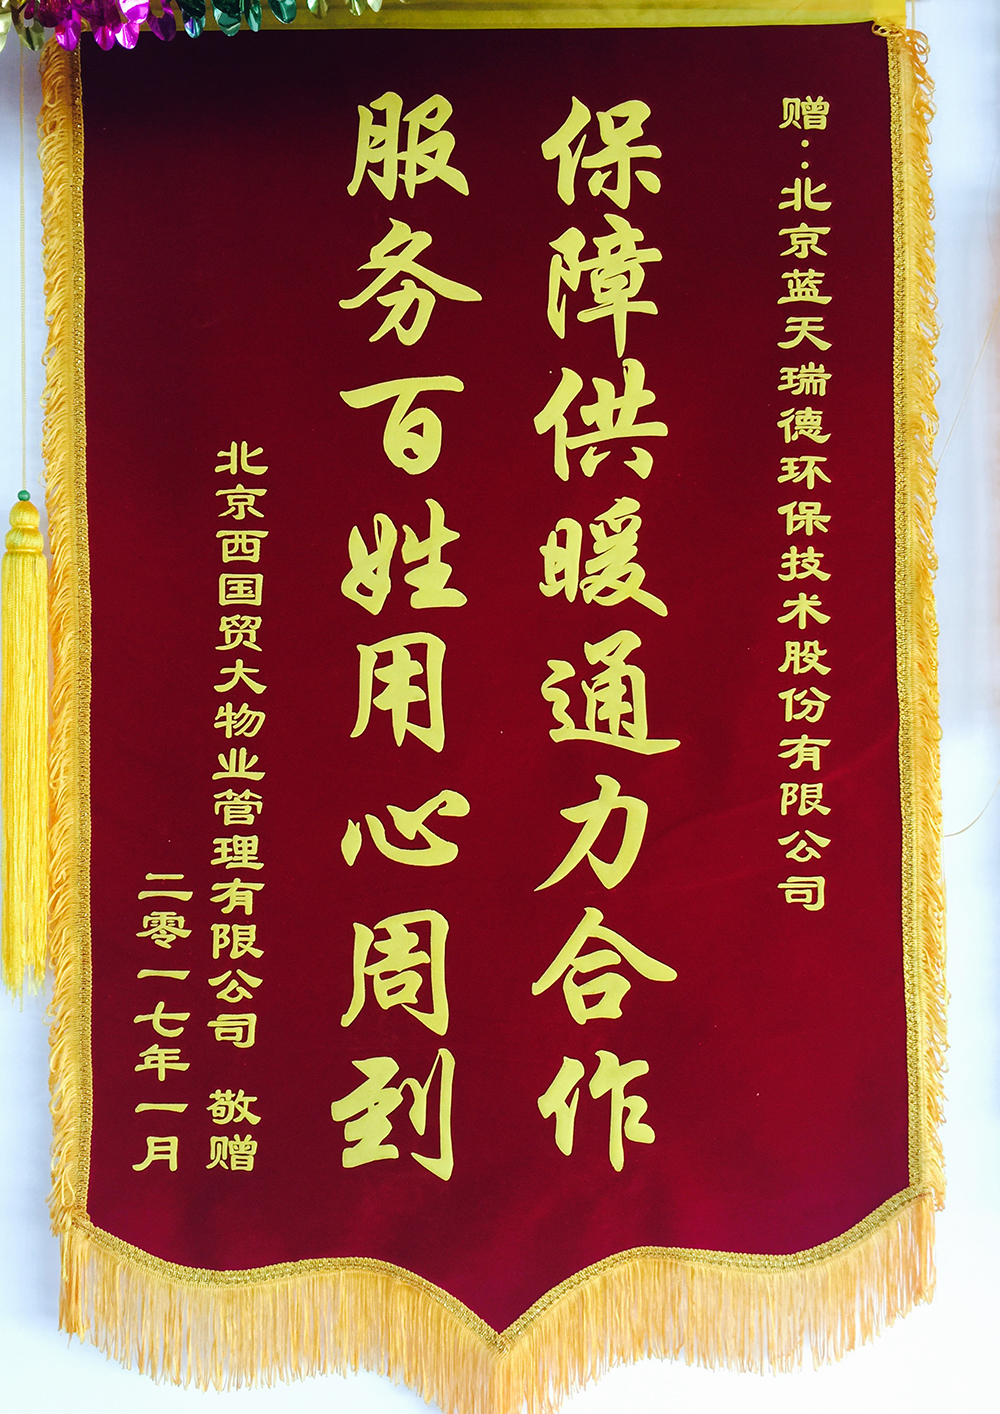 赠：北京蓝天瑞德环保技术股份有限公司
保障供暖通力合作
服务百姓用心周到
北京西国贸大物业管理有限公司 敬赠
二零一七年一月